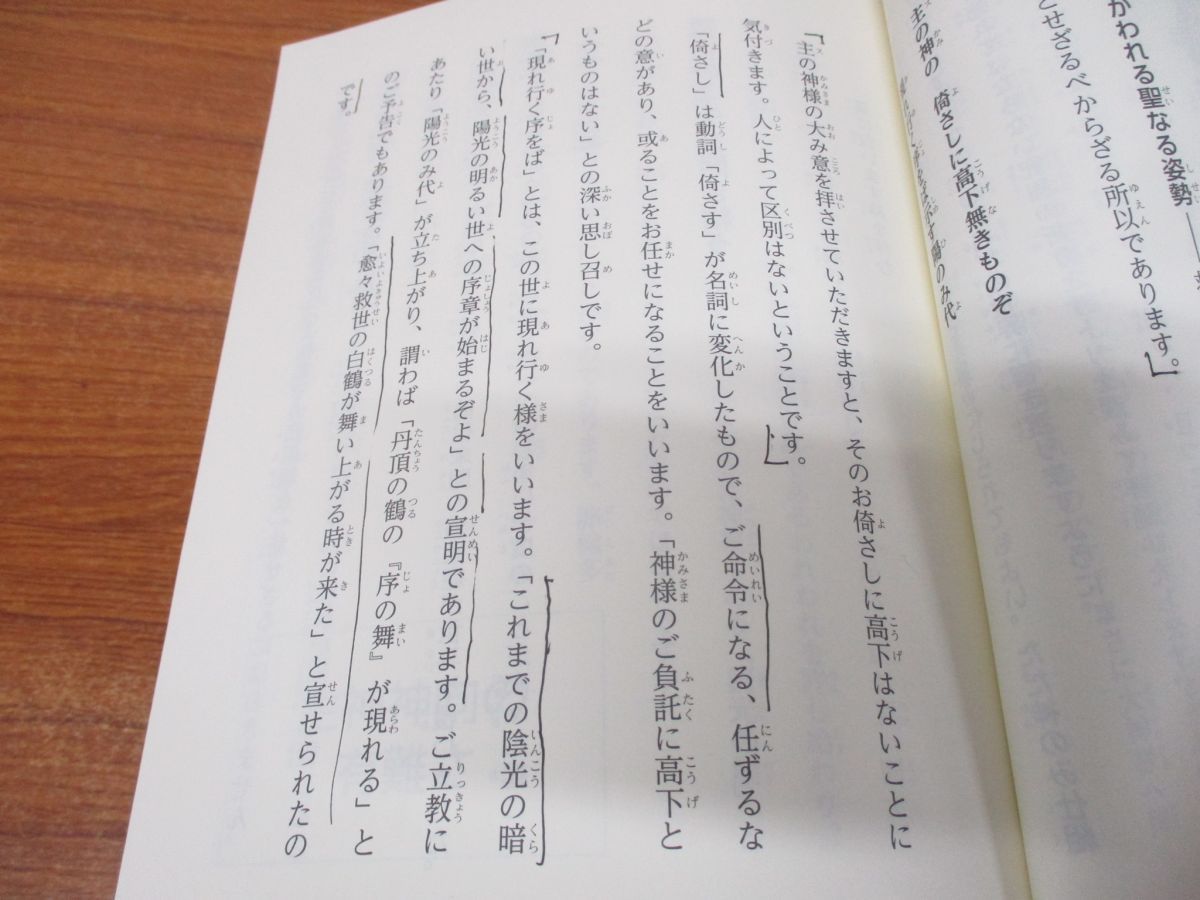 かわれる聖なる姿勢
とせざるべからざる所以であります。」
主の神の　倚さしに高下無きものぞ
陽のみ代
主の神様の大み意を拝させていただきますと、そのお倚さしに高下はないことに
気付きます。人によって区別はないということです。
「倚さし」は動詞「倚さす」が名詞に変化したもので、ご命令になる、任ずるな
どの意があり、或ることをお任せになることをいいます。「神様のご負託に高下と
いうものはない」との深い思し召しです。
「現れ行く序をば」とは、この世に現れ行く様をいいます。「これまでの陰光の暗
い世から、陽光の明るい世への序章が始まるぞよ」との宣明であります。ご立教に
あたり「陽光のみ代」が立ち上がり、謂わば「丹頂の鶴の『序の舞』が現れる」と
のご予告でもあります。「愈々救世の白鶴が舞い上がる時が来た」と宣せられたの
です。